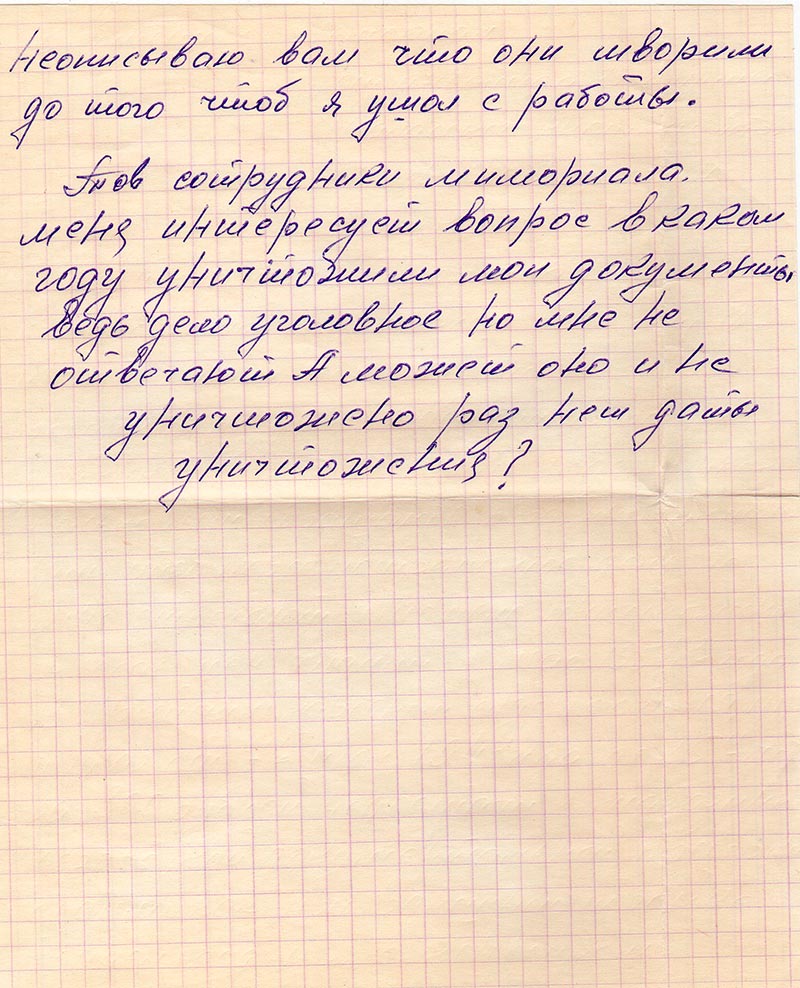 неописываю вам что они творили
до того чтоб я ушол с работы.
Тов сотрудники мимориала.
меня интересует вопрос в каком
году уничтожили мои документы
ведь дело уголовное но мне не
отвечают А может оно и не
уничтожено раз нет даты
уничтожения?